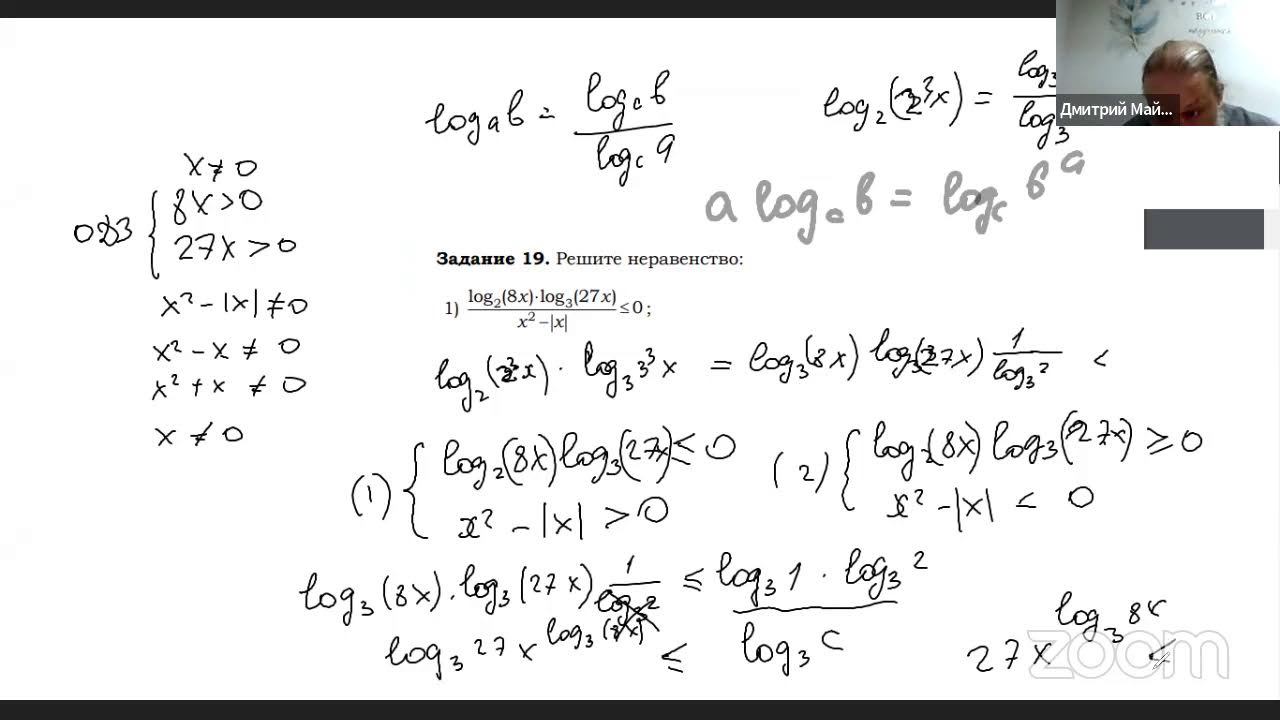 ВСЁ
Дмитрий Май...
log_a b = log_c b / log_c a
log_2(2^3x) = log_3 / log_3
a log_c b = log_c b^a
ОДЗ
x ≠ 0
8x > 0
27x > 0
x² - |x| ≠ 0
x² - x ≠ 0
x² + x ≠ 0
x ≠ 0
Задание 19. Решите неравенство:
1) log₂(8x)·log₃(27x) / x² – |x| ≤ 0 ;
log_2(2^3x) · log_3 3^3x = log_3(8x) log_3(27x) 1/log_3 2 <
(1) { log_2(8x) log_3(27x) ≤ 0
x² - |x| > 0
(2) { log_2(8x) log_3(27x) ≥ 0
x² - |x| < 0
log_3(8x) · log_3(27x) 1/log_3 2 ≤ log_3 1 · log_3 2 / log_3 c
log_3 27x^log_3(8x) ≤
27x^log_3 8x ≤
zoom